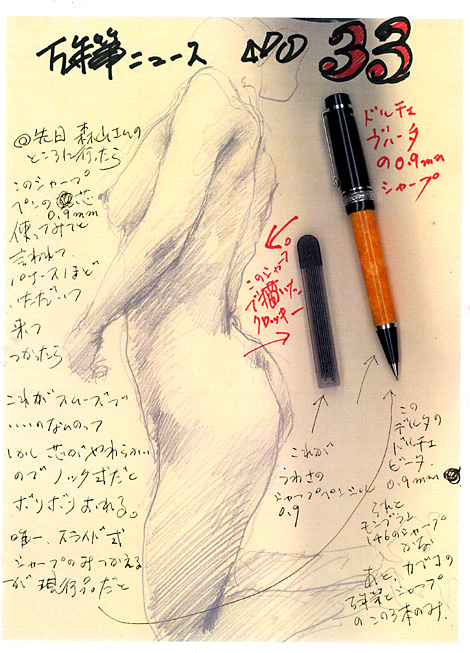 万年筆ニュース NO 33
ドルチェ
ヴィータ
の0.9mm
シャープ
@先日 森山さんの
ところに行ったら
このシャープ
ペンの芯
0.9mm
使ってみてと
言われて、
1ケースほど
いただいて
来て
つかったら
これがスムーズで
いいのなんのって
しかし芯がやわらかい
のでノック式だと
ボリボリおれる。
唯一、スライド式
シャープのみつかえる
が現行品だと
このシャープ
で描いた
クロッキー
これが
うわさの
シャープペンシル
0.9
この
デルタの
ドルチェ
ビータ.
0.9mm
モンブラン
146のシャープ
かな
あと、カヴェコの
万年筆とシャープ
のこの3本のみ.